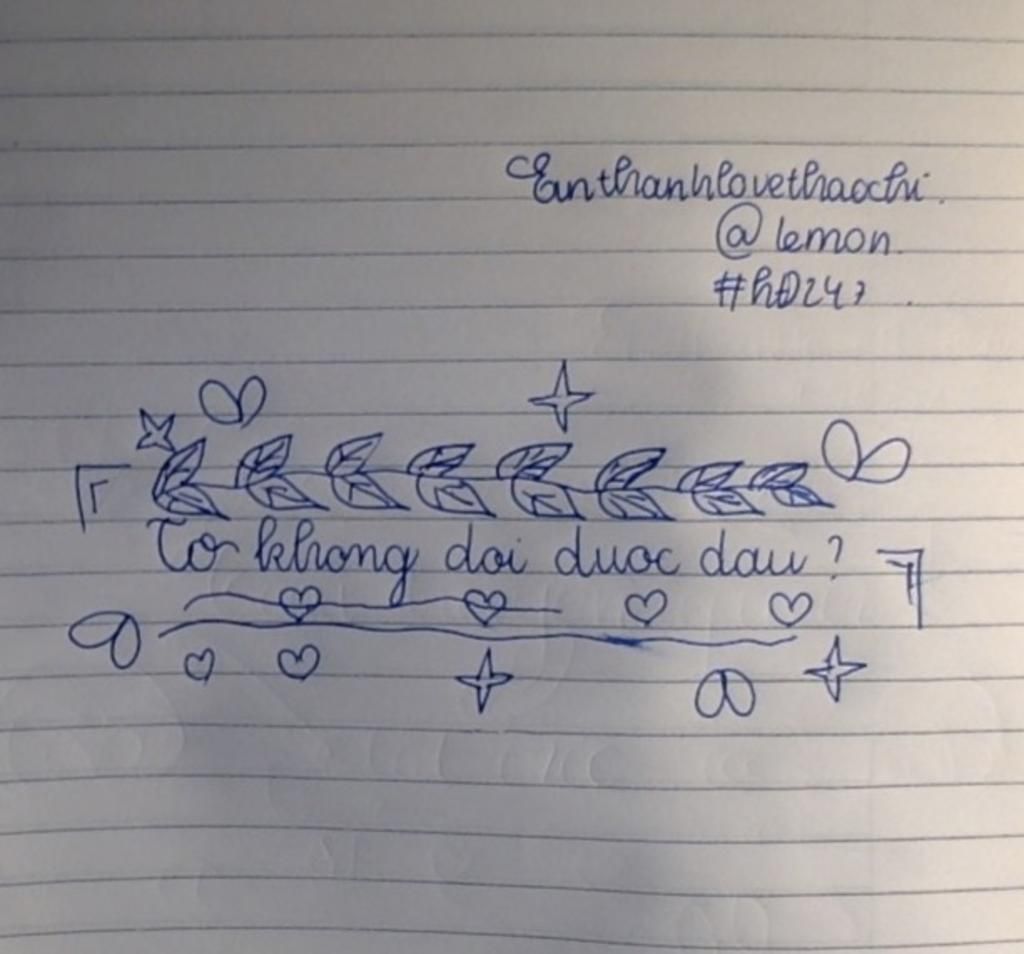 Emthanhlovethaochi.
@lemon.
#hĐ247.
To khong doi duoc dau?